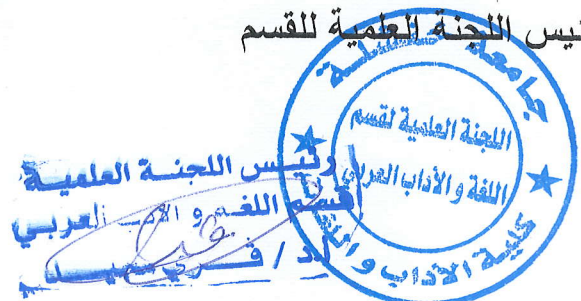 يس اللجنة العلمية للقسم
جامعة
اللجنة العلمية لقسم
اللغة والأداب العربي
كلية الآداب و
رئيس اللجنة العلمية
لقسم اللغة و الأدب العربي
أ.د /